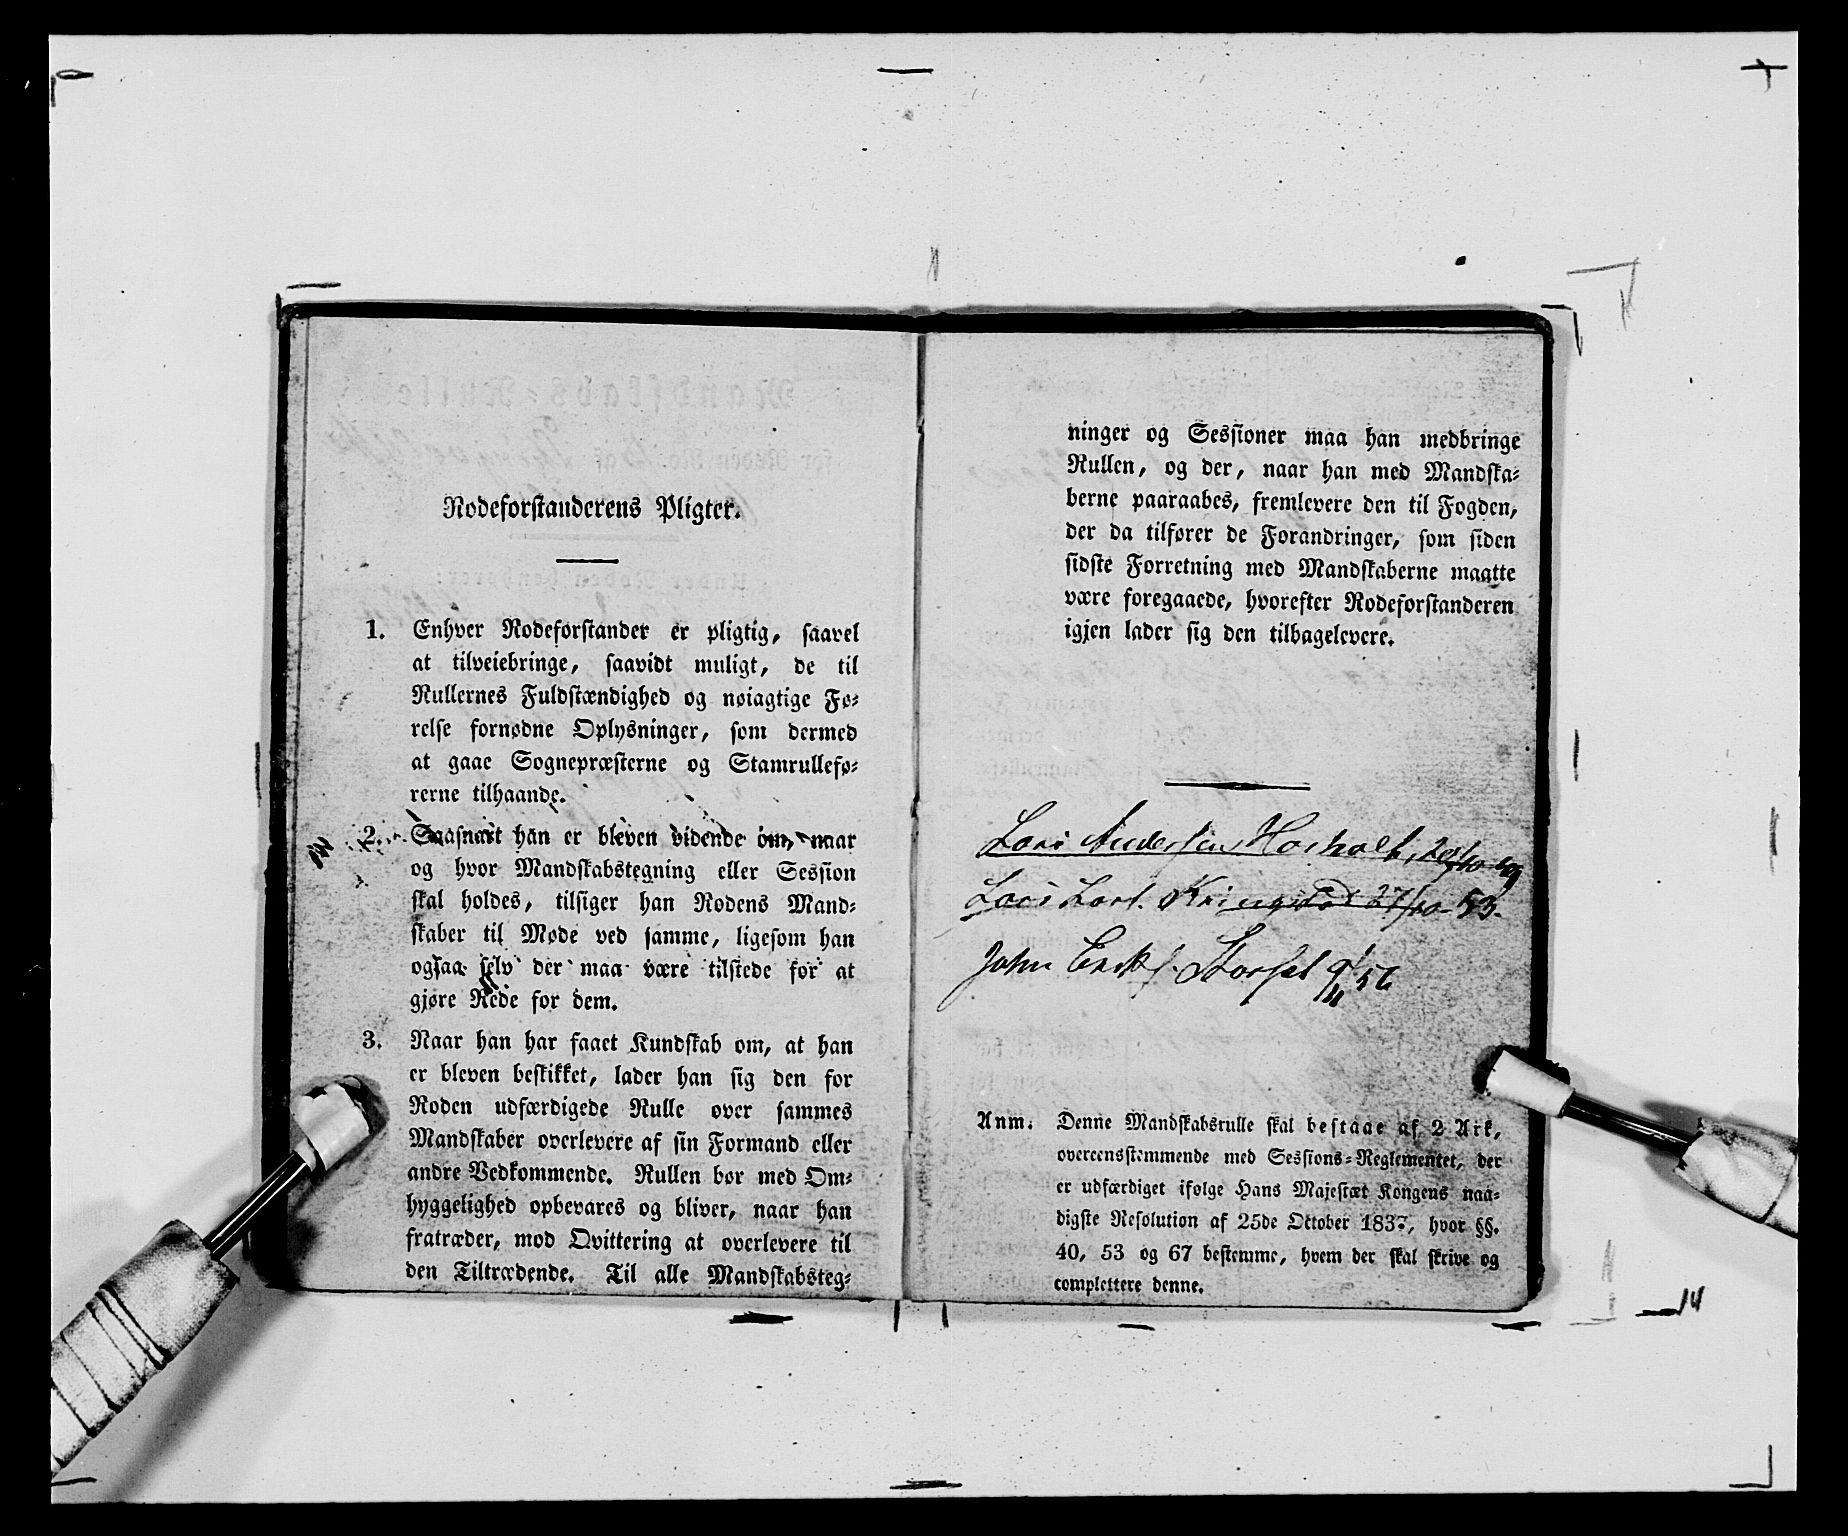 Rodeforstanderens Pligter.
1. Enhver Rodeforstander er pligtig, saavel
at tilveiebringe, saavidt muligt, de til
Rullernes Fuldstændighed og nøiagtige Fø-
relse fornødne Oplysninger, som dermed
at gaae Sognepræsterne og Stamrullefø-
rerne tilhaande.
2. Saasnart han er bleven vidende om, naar
og hvor Mandskabstegning eller Session
skal holdes, tilsiger han Rodens Mand-
skaber til Møde ved samme, ligesom han
ogsaa selv der maa være tilstede for at
gjøre Rede for dem.
3. Naar han har faaet Kundskab om, at han
er bleven beskikket, lader han sig den for
Roden udfærdigede Rulle over sammes
Mandskaber overlevere af sin Formand eller
andre Vedkommende. Rullen bør med Om-
hyggelighed opbevares og bliver, naar han
fratræder, mod Qvittering at overlevere til
den Tiltrædende. Til alle Mandskabsteg-
ninger og Sessioner maa han medbringe
Rullen, og der, naar han med Mandska-
berne paaraabes, fremlevere den til Fogden,
der da tilfører de Forandringer, som siden
sidste Forretning med Mandskaberne maatte
være foregaaede, hvorefter Rodeforstanderen
igjen lader sig den tilbagelevere.
Lars Andersen
Lars Lars. 27/10-53.
John Eriks. 9/11 56
Anm. Denne Mandskabsrulle skal bestaae af 2 Ark,
overeensstemmende med Sessions-Reglementet, der
er udfærdiget ifølge Hans Majestæt Kongens naa-
digste Resolution af 25de October 1837, hvor §§.
40, 53 og 67 bestemme, hvem der skal skrive og
complettere denne.
14